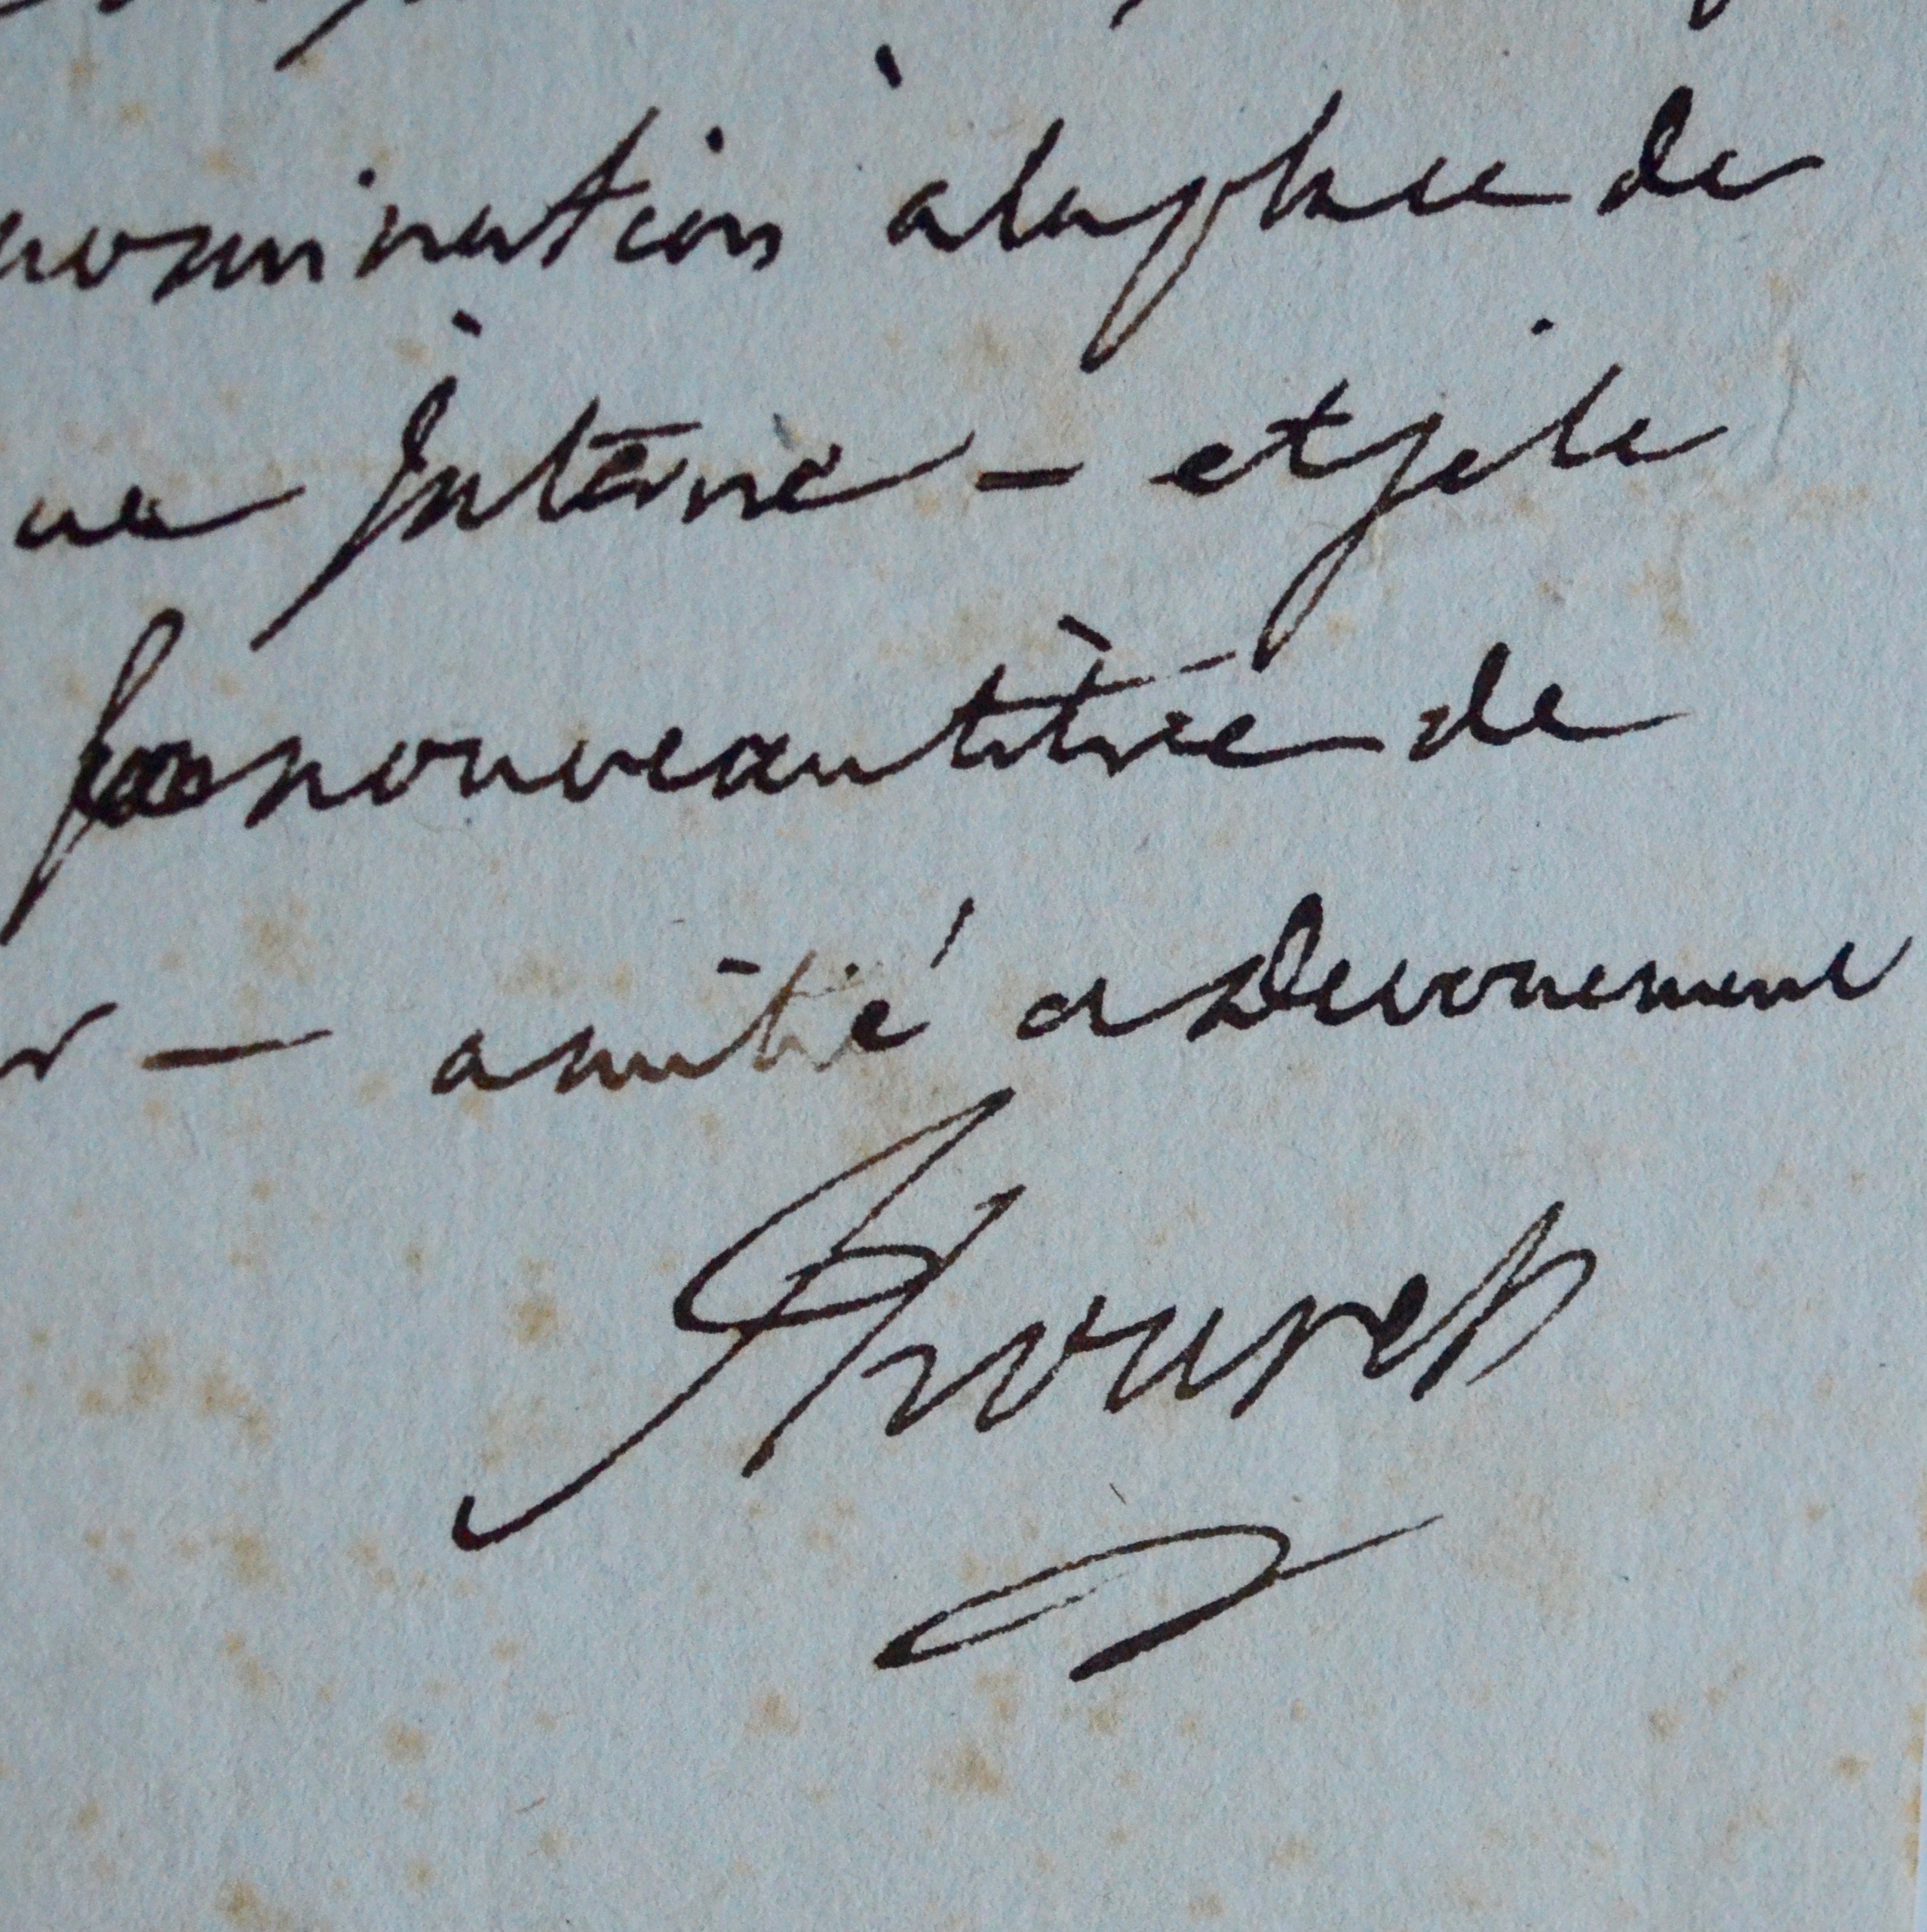 nomination à la place de
interne - et je le
nouveau titre de
r - amitié et Devouement
Thouret